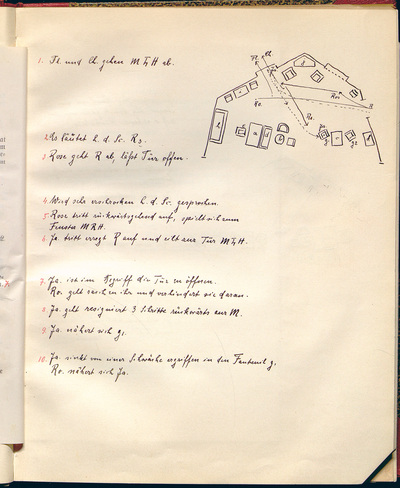 1. Fl. und Ch gehen M T H ab.
2. Es läutet h. d. Sc. R 3.
3 Rose geht R ab, läßt Türe offen.
4. Wird sehr erschrocken h. d. Sc. gesprochen.
5. Rose tritt rückwärtsgehend auf, spielt sich zum
Fenster M R H.
6. Ja tritt erregt R auf und eilt zur Tür M T H.
7. Ja. ist im Begriff die Tür zu öffnen.
Ro. geht zwischen ihr und verhindert sie daran.
8. Ja. geht resigniert 3 Schritte rückwärts zur M.
9. Ja. nähert sich g1.
10. Ja. sinkt von einer Schwäche ergriffen in den Fauteuil g1
Ro. nähert sich Ja.